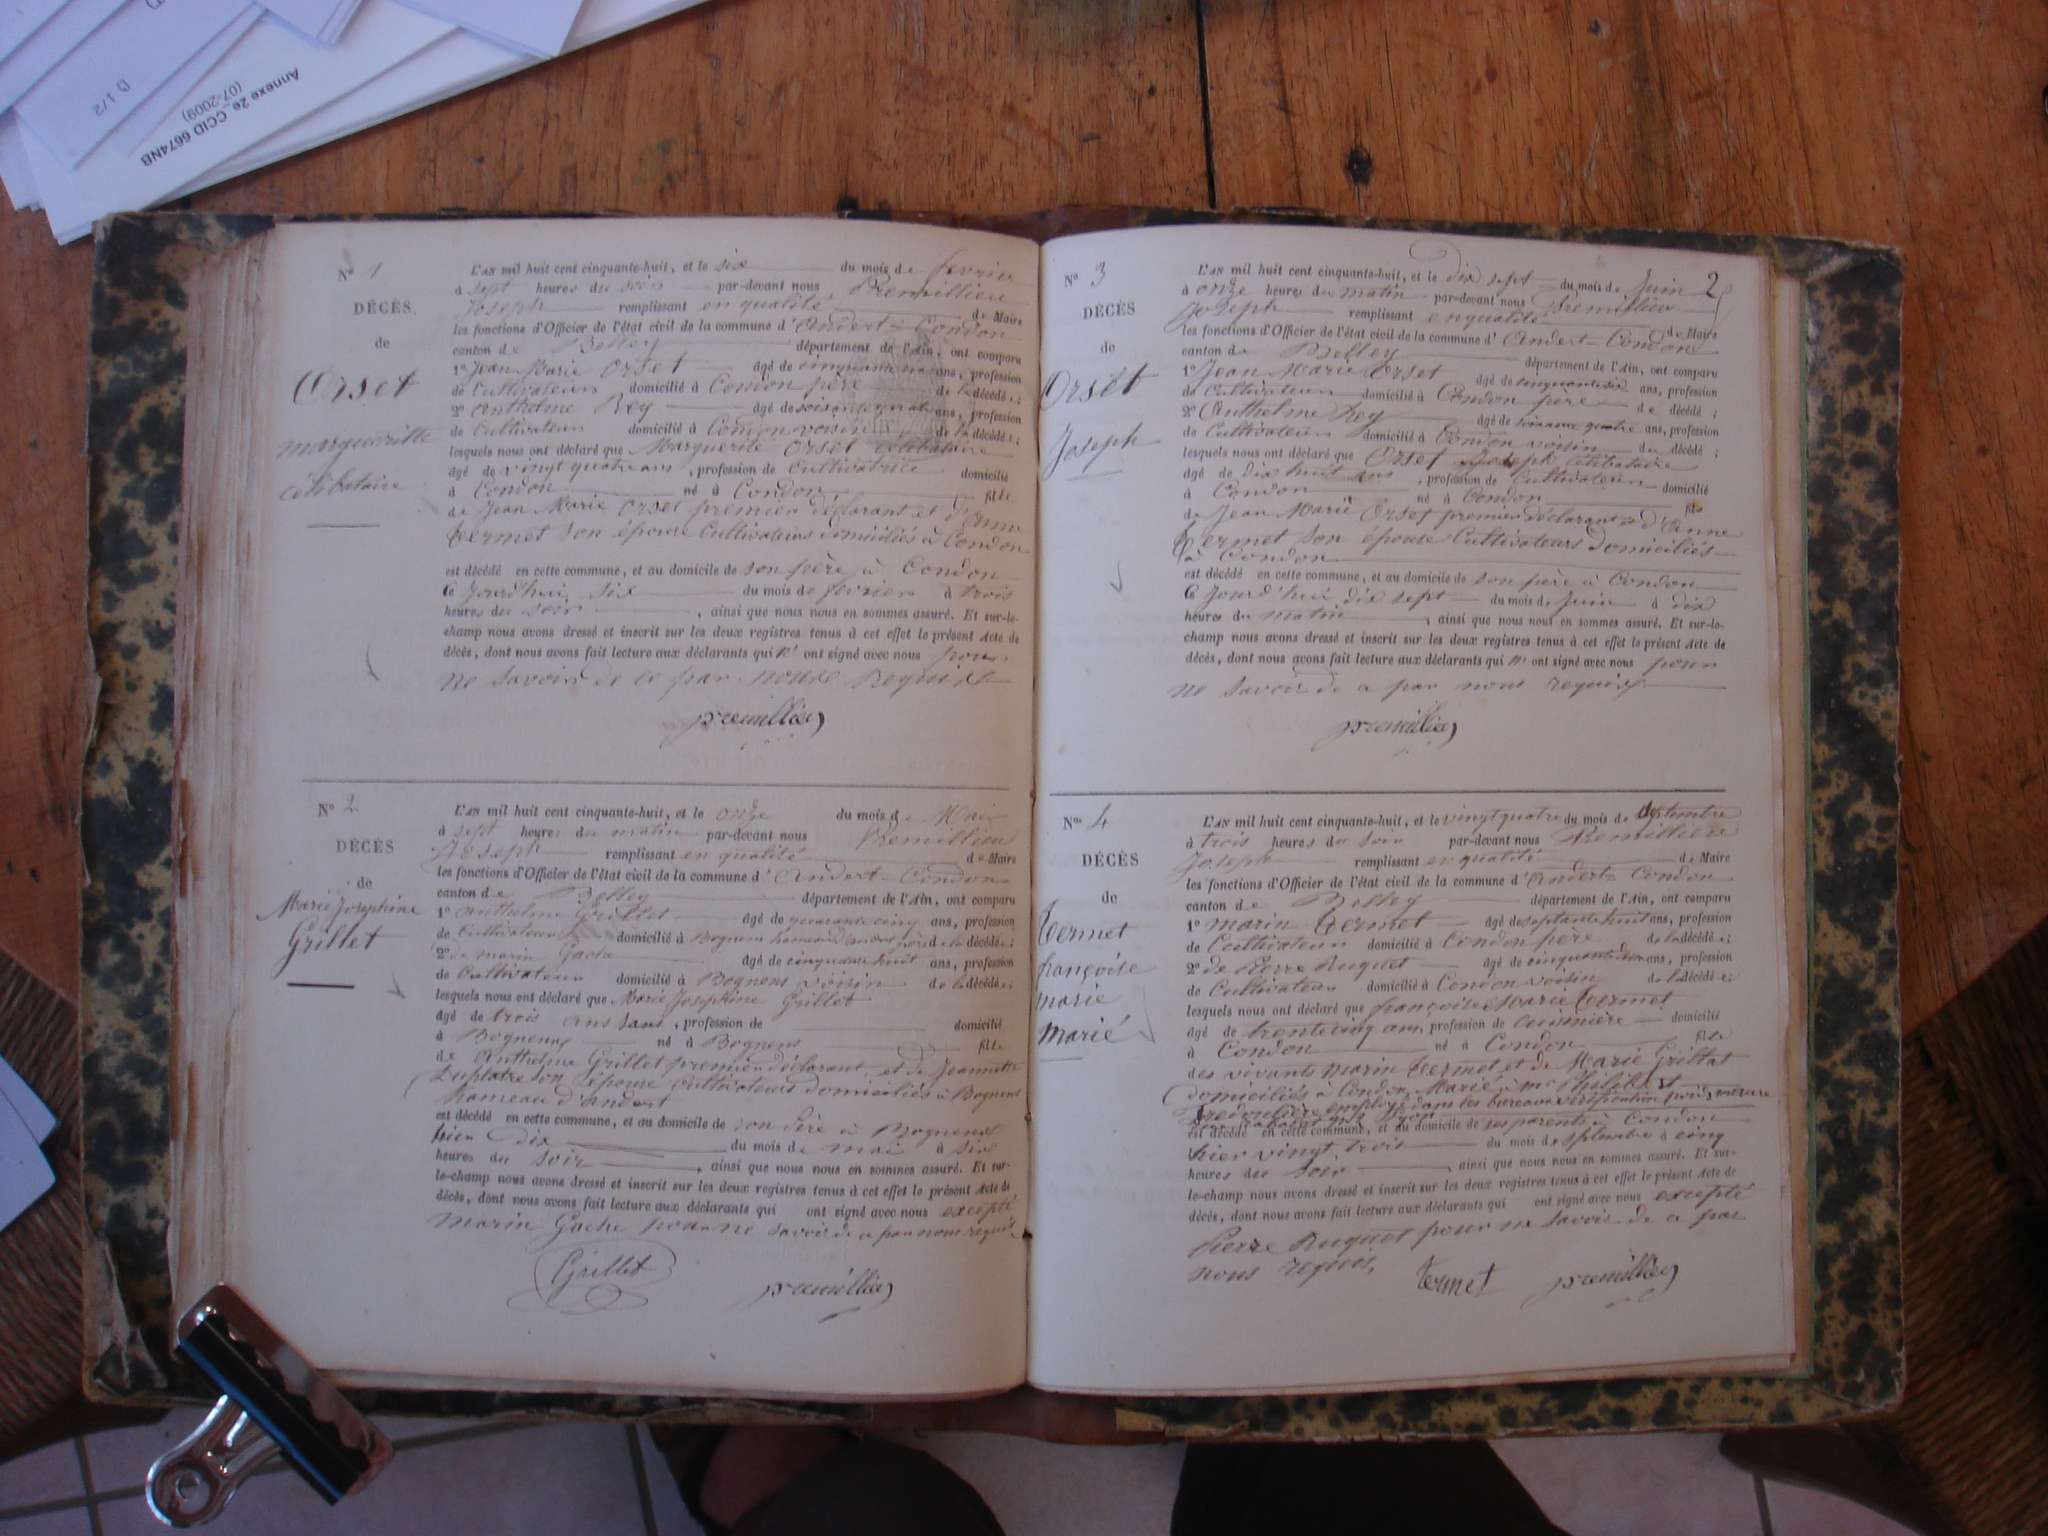 D 1/2
Annexe 2e CCID 6674NB
(07-2009)
N° 1
DÉCÈS
de
Orset
margueritte
célibataire
L'AN mil huit cent cinquante-huit, et le six du mois de fevrier
à sept heures du soir par-devant nous Premillieu
Joseph remplissant en qualité de Maire
les fonctions d'Officier de l'état civil de la commune d'Andert-Condon
canton de Belley département de l'Ain, ont comparu
1° Jean Marie Orset âgé de ans, profession
de Cultivateur domicilié à Condon père de la décédée;
2° Anthelme Rey âgé de soixante quatre ans, profession
de Cultivateur domicilié à Condon voisin de la décédée;
lesquels nous ont déclaré que Marguerite Orset célibataire
âgé de vingt quatre ans, profession de Cultivatrice domicilié
à Condon né à Condon fille
de Jean Marie Orset premier déclarant et d'Anne
Termet son épouse Cultivateurs domiciliés à Condon
est décédé en cette commune, et au domicile de son père à Condon
Cejourd'hui six du mois de fevrier à trois
heures du soir, ainsi que nous nous en sommes assuré. Et sur-le-
champ nous avons dressé et inscrit sur les deux registres tenus à cet effet le présent Acte de
décès, dont nous avons fait lecture aux déclarants qui n' ont signé avec nous pour
ne savoir de ce par nous requis
premillieu
N° 2
DÉCÈS
de
Marie Josephine
Grillet
L'AN mil huit cent cinquante-huit, et le onze du mois de Mai
à sept heures du matin par-devant nous Premillieu
Joseph remplissant en qualité de Maire
les fonctions d'Officier de l'état civil de la commune d'Andert-Condon
canton de Belley département de l'Ain, ont comparu
1° Anthelme Grillet âgé de quarante cinq ans, profession
de Cultivateur domicilié à Bognens hameau d'andert père de la décédée;
2° de marin Gache âgé de cinquante huit ans, profession
de Cultivateur domicilié à Bognens voisin de la décédée;
lesquels nous ont déclaré que Marie Josephine Grillet
âgé de trois ans sans, profession de domicilié
à Bognens né à Bognens fille
de Anthelme Grillet premier déclarant, et de Jeannette
son épouse Cultivateurs domiciliés à Bognens
hameau d'andert
est décédé en cette commune, et au domicile de son père à Bognens
hier dix du mois de mai à six
heures du soir, ainsi que nous nous en sommes assuré. Et sur-
le-champ nous avons dressé et inscrit sur les deux registres tenus à cet effet le présent Acte de
décès, dont nous avons fait lecture aux déclarants qui ont signé avec nous excepté
Marin Gache pour ne savoir de ce par nous requis
Grillet premillieu
N° 3
DÉCÈS
de
Orset
Joseph
2
L'AN mil huit cent cinquante-huit, et le dix sept du mois de Juin
à onze heures du matin par-devant nous Premillieu
Joseph remplissant en qualité de Maire
les fonctions d'Officier de l'état civil de la commune d'Andert-Condon
canton de Belley département de l'Ain, ont comparu
1° Jean Marie Orset âgé de ans, profession
de Cultivateur domicilié à Condon père de décédé;
2° Anthelme Rey âgé de soixante quatre ans, profession
de Cultivateur domicilié à Condon voisin du décédé;
lesquels nous ont déclaré que Orset Joseph célibataire
âgé de dix huit ans, profession de Cultivateur domicilié
à Condon né à Condon fils
de Jean Marie Orset premier déclarant & d'Anne
Termet son épouse Cultivateurs domiciliés
à Condon
est décédé en cette commune, et au domicile de son père à Condon
Cejourd'hui dix sept du mois de Juin à dix
heures du matin, ainsi que nous nous en sommes assuré. Et sur-le-
champ nous avons dressé et inscrit sur les deux registres tenus à cet effet le présent Acte de
décès, dont nous avons fait lecture aux déclarants qui n' ont signé avec nous pour
ne savoir de ce par nous requis
premillieu
N° 4
DÉCÈS
de
Termet
françoise
marie
Marié
L'AN mil huit cent cinquante-huit, et le vingt quatre du mois de septembre
à trois heures du soir par-devant nous Premillieu
Joseph remplissant en qualité de Maire
les fonctions d'Officier de l'état civil de la commune d'Andert-Condon
canton de Belley département de l'Ain, ont comparu
1° marin Termet âgé de septante huit ans, profession
de Cultivateur domicilié à Condon père de la décédée;
2° de Pierre Ruguet âgé de ans, profession
de Cultivateur domicilié à Condon voisin de la décédée;
lesquels nous ont déclaré que françoise Marie Termet
âgé de trente cinq ans, profession de cuisinière domicilié
à Condon né à Condon fille
des vivants marin Termet et de Marie Grillat
domiciliés à Condon, Mariée à
employé dans les bureaux vérification poids, mesure
est décédé en cette commune, et au domicile de ses parents à Condon
hier vingt trois du mois de septembre à cinq
heures du soir, ainsi que nous nous en sommes assuré. Et sur-
le-champ nous avons dressé et inscrit sur les deux registres tenus à cet effet le présent Acte de
décès, dont nous avons fait lecture aux déclarants qui ont signé avec nous excepté
Pierre Ruguet pour ne savoir de ce par
nous requis.
Termet premillieu